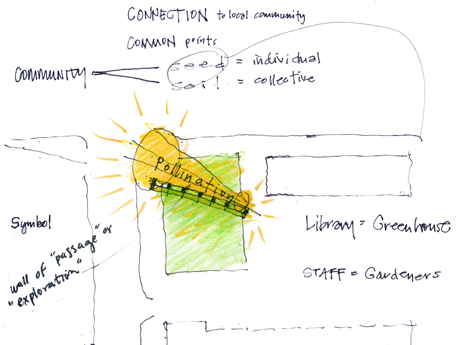 CONNECTION to local community
COMMON points
COMMUNITY
seed = individual
soil = collective
Pollination
Symbol
Library = Greenhouse
wall of "passage" or
"exploration"
STAFF = Gardeners